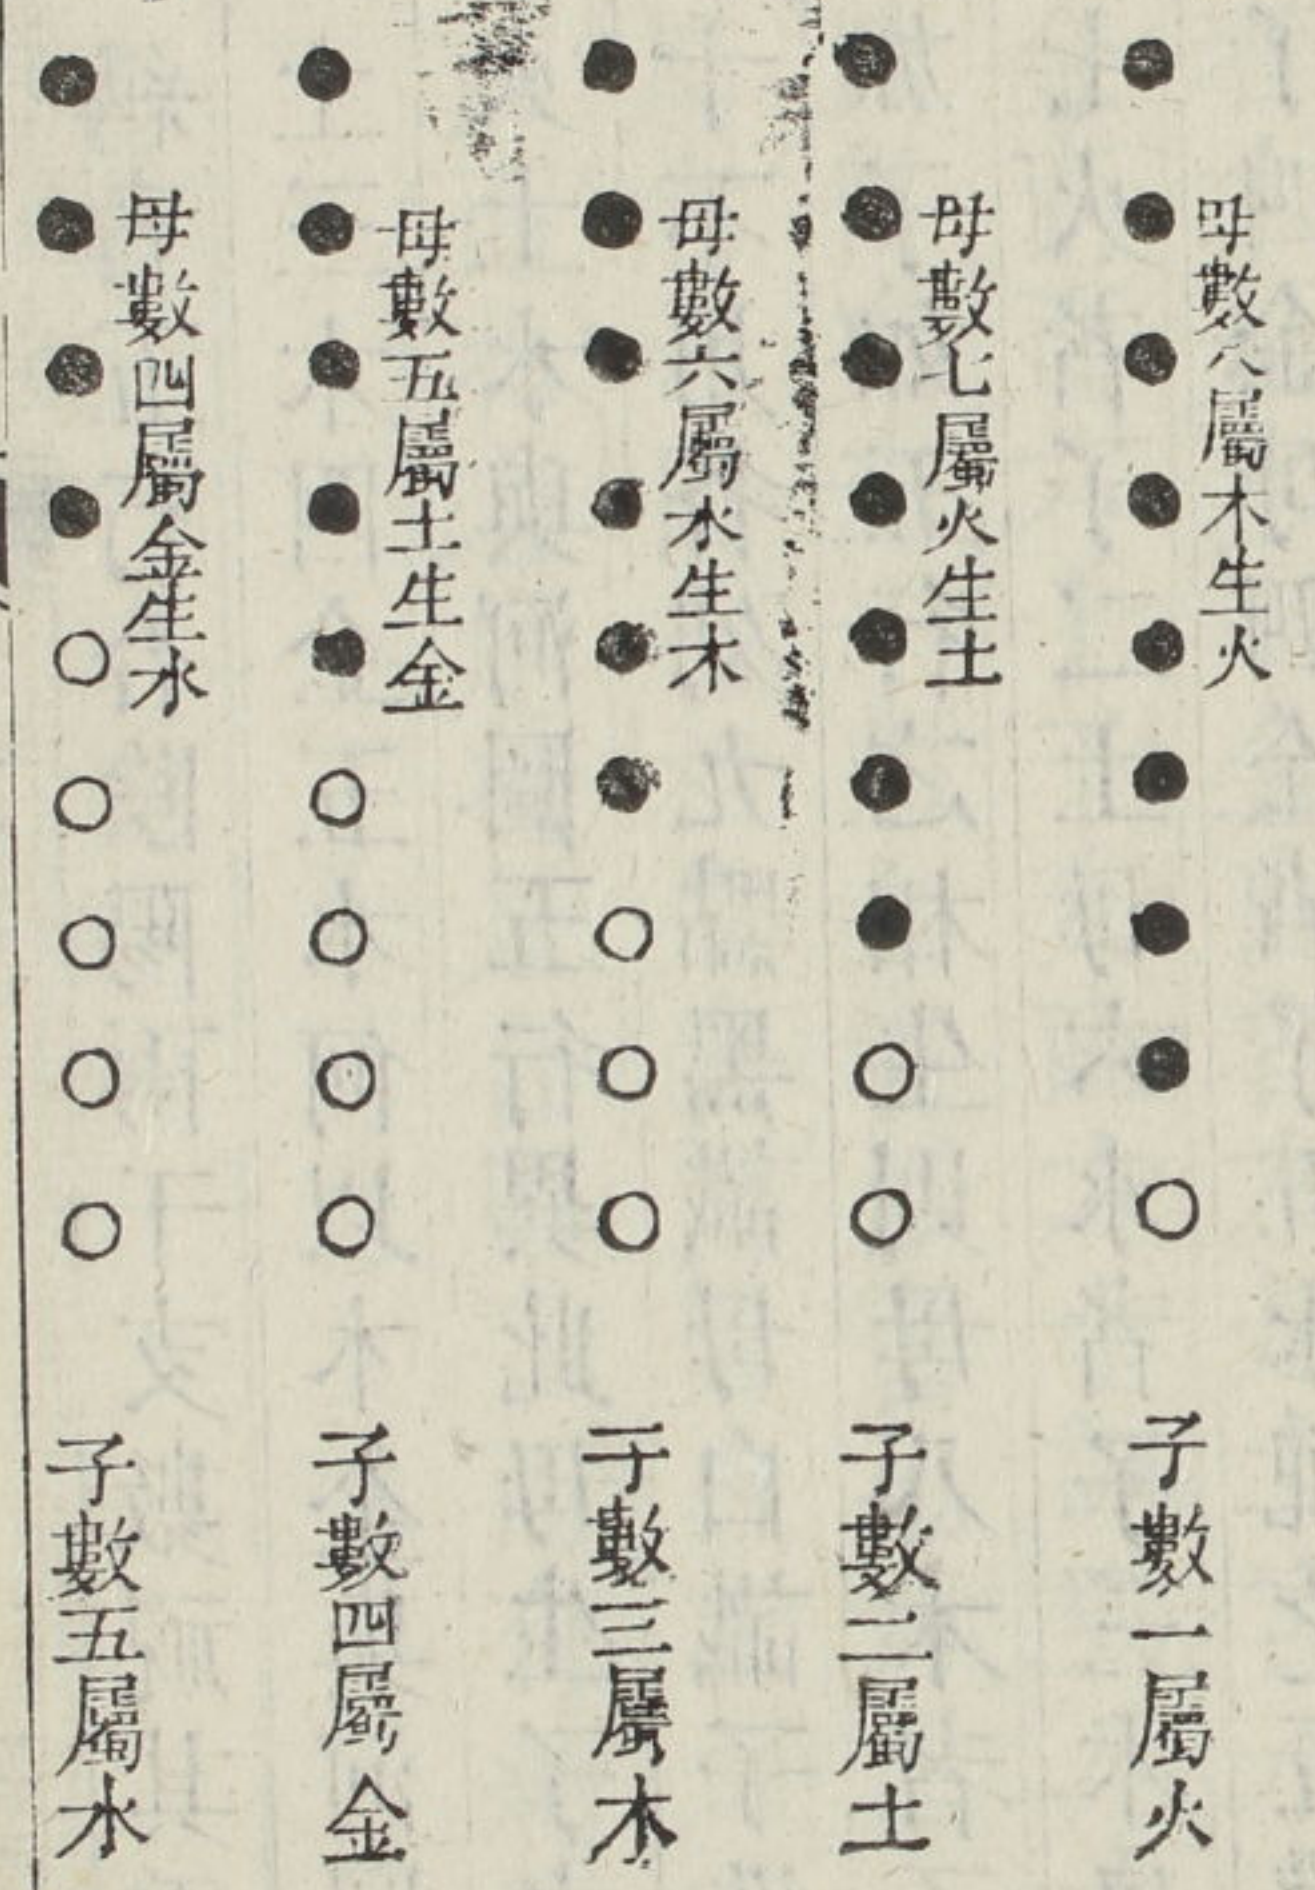 母數八屬木生火
子數一屬火
母數七屬火生土
子數二屬土
母數六屬水生木
子數三屬木
母數五屬土生金
子數四屬金
母數四屬金生水
子數五屬水